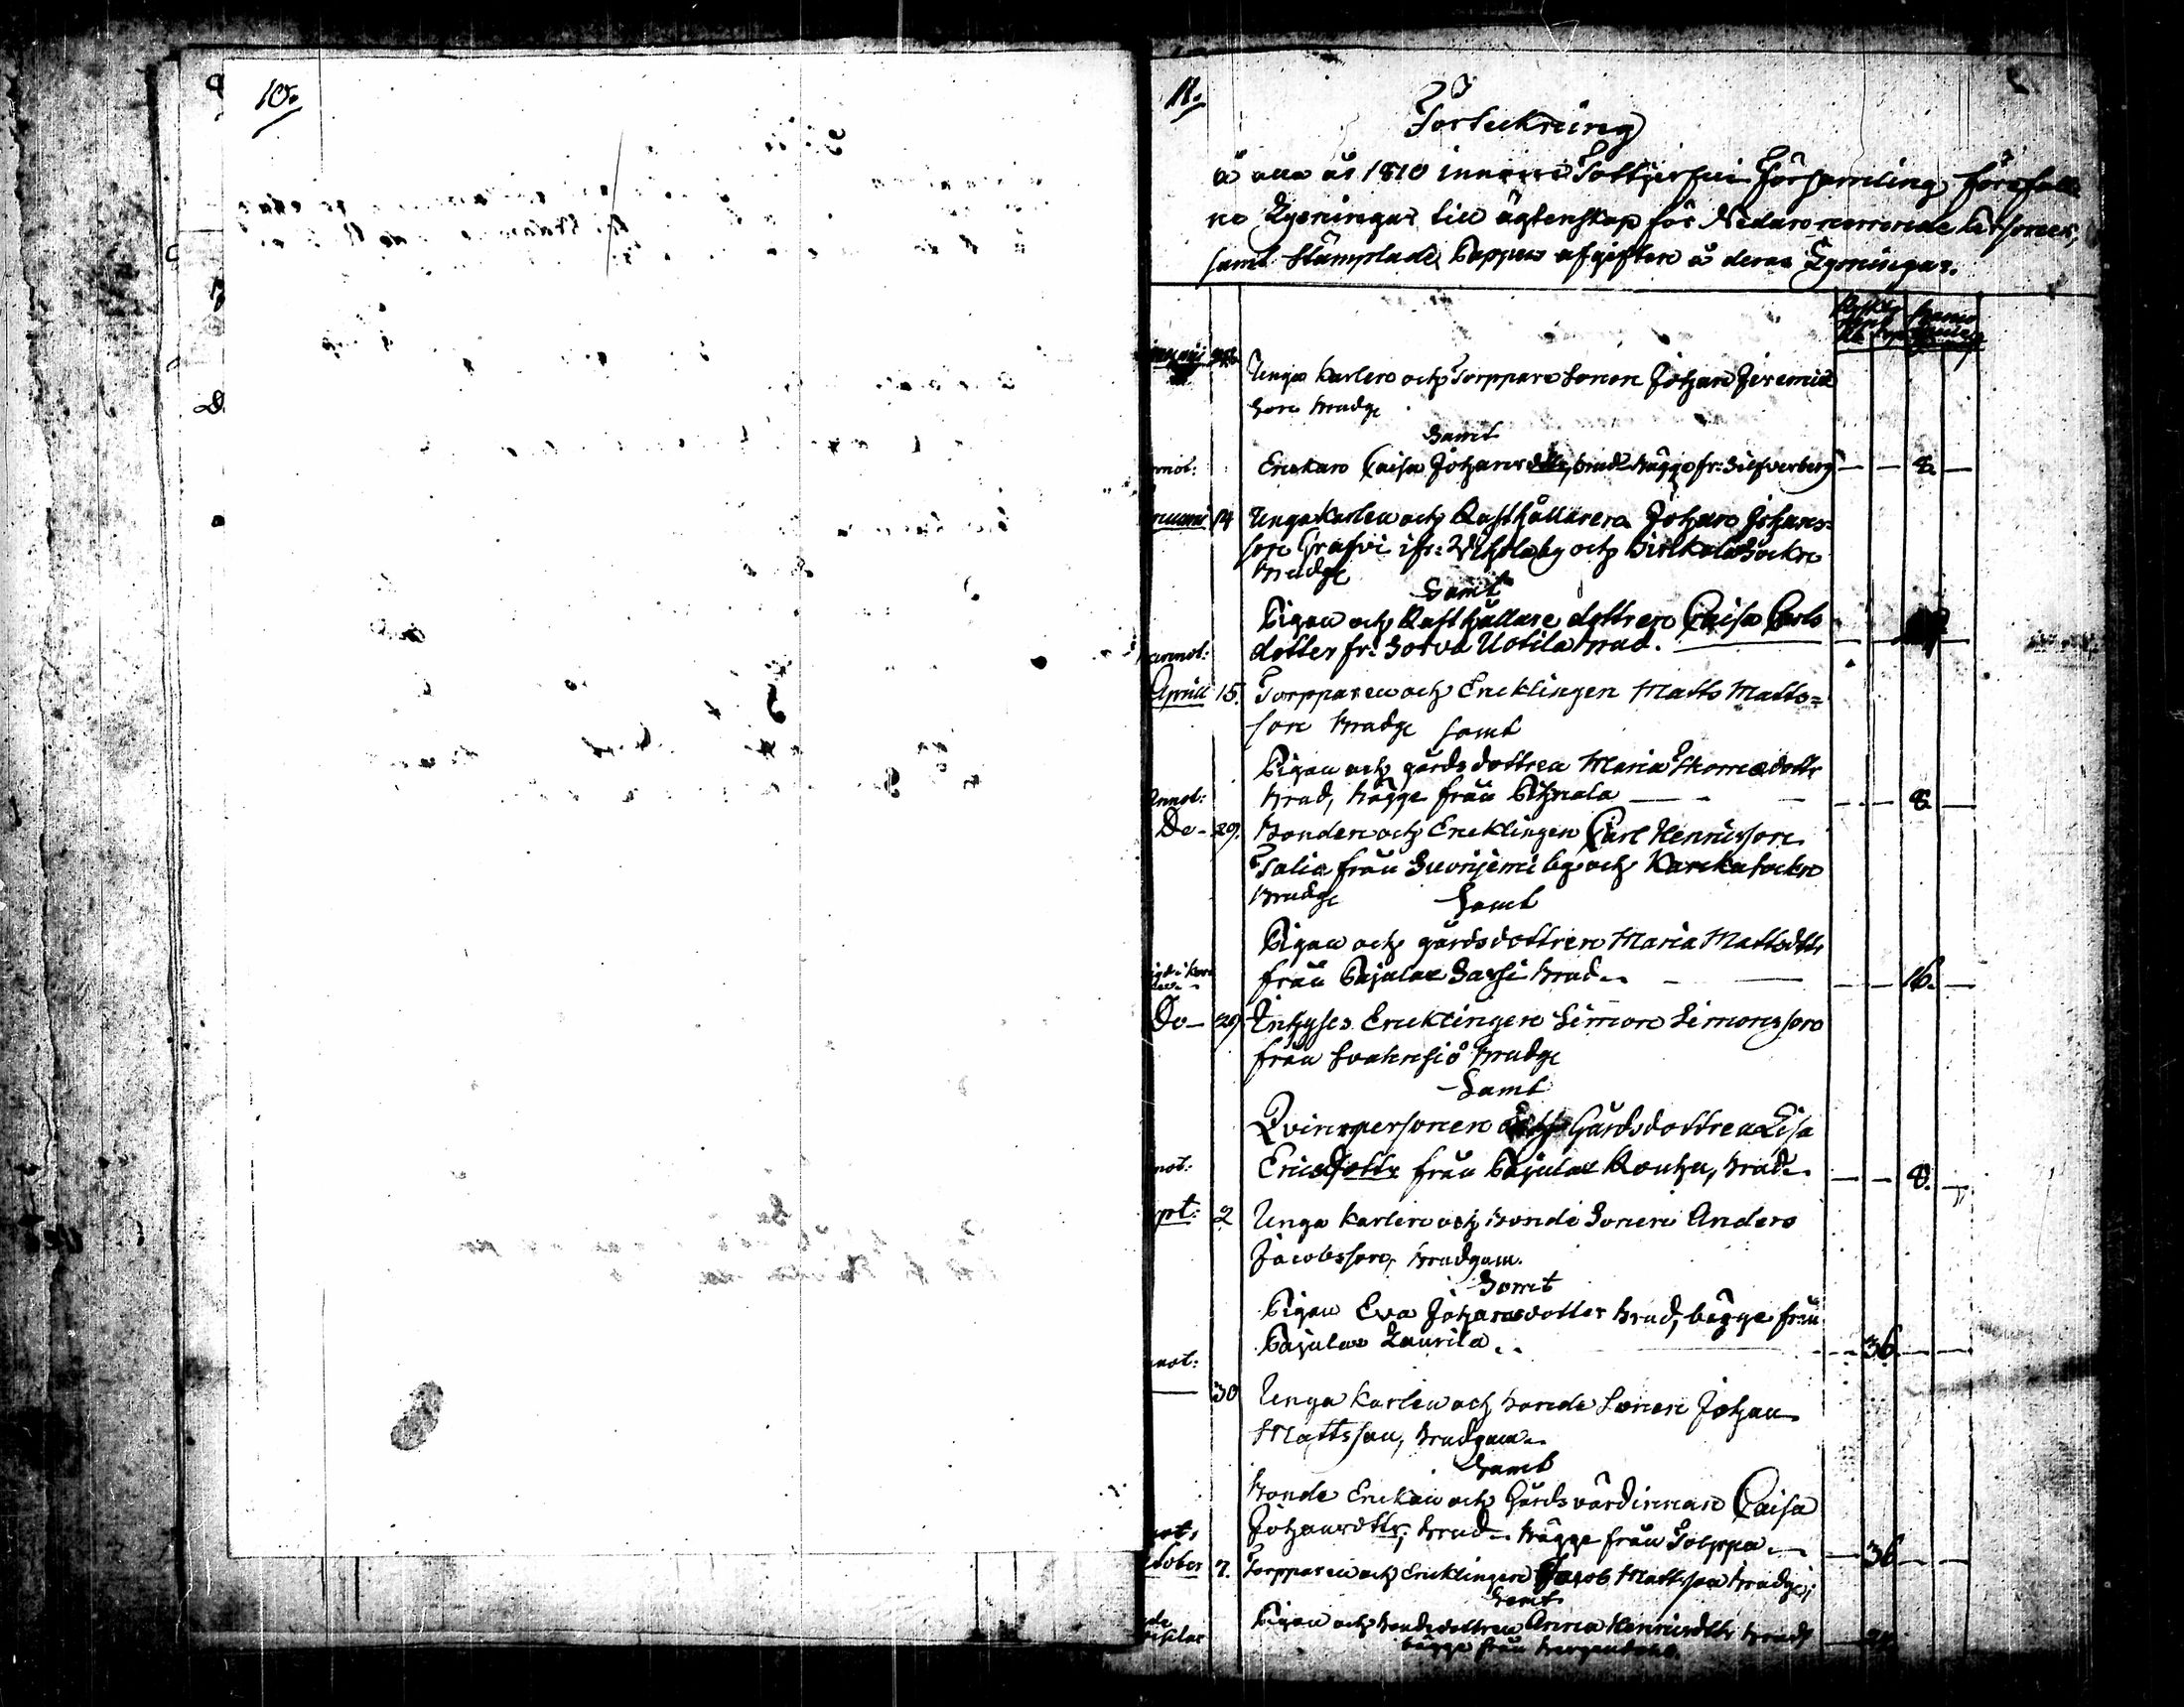 10.
11.
Förteckning
å alla år 1810 inom Pottjerfvi Församling förefall
ne Lysningar till ägtenskap för Nedannemnde Personer,
samt Stämplade Pappers afgiften å deras Lysningar.
Unga Karlen och Torppare Sonen Johan Jeremiæ
Son Brudge
Samt
Enckan Caisa Johansdotter, brud bägge fr: Silfverberg — — 8. —
14 Unga Karlen och Rusthållaren Johan Johans-
son Grafvi ifr: by och Birkala Sockn
Brudge
Samt
Pigan och Rusthållare dottren Caisa Carls
dotter fr: Sorva Uotila brud.
Aprill 15. Torpparen och Encklingen Matts Matts=
son Brudge samt
Pigan och gårds dottren Maria Thomædottr
Annot: brud, bägge från Pihnala — — 8. —
Do - 29. Bonden och Encklingen Carl Henricsson
Talia från Suonjemi by och Karcku sockn
Brudge Samt
Pigan och gårdsdottren Maria Mattsdttr
från Pajulax Sassi brud. — — 16. —
Do — 29. Inhyses Encklingen Simon Simonsson
från Svahnsiö Brudge
Samt
Qvinspersonen och Gårdsdottren Lisa
not: Ericsdottr från Pajulax Rouhu, brud. — — 8. —
pt: 2 Unga Karlen och bonde Sonen Anders
Jacobsson, brudgum.
Samt
Pigan Eva Johansdotter brud, bägge från
not: Pajulax Laurila. — 36 — —
— 30 Unga Karlen och bonde Sonen Johan
Mattsson, brudgum.
Samt
Bonde Enckan och Gårds värdinnan Caisa
not: Johansdttr, brud. bägge från Tolppa. — 36 — —
tober 7. Torpparen och Encklingen Jacob Mattsson brudge,
Samt
Pigan och bondedottren Anna Henricsdttr brud
bägge från